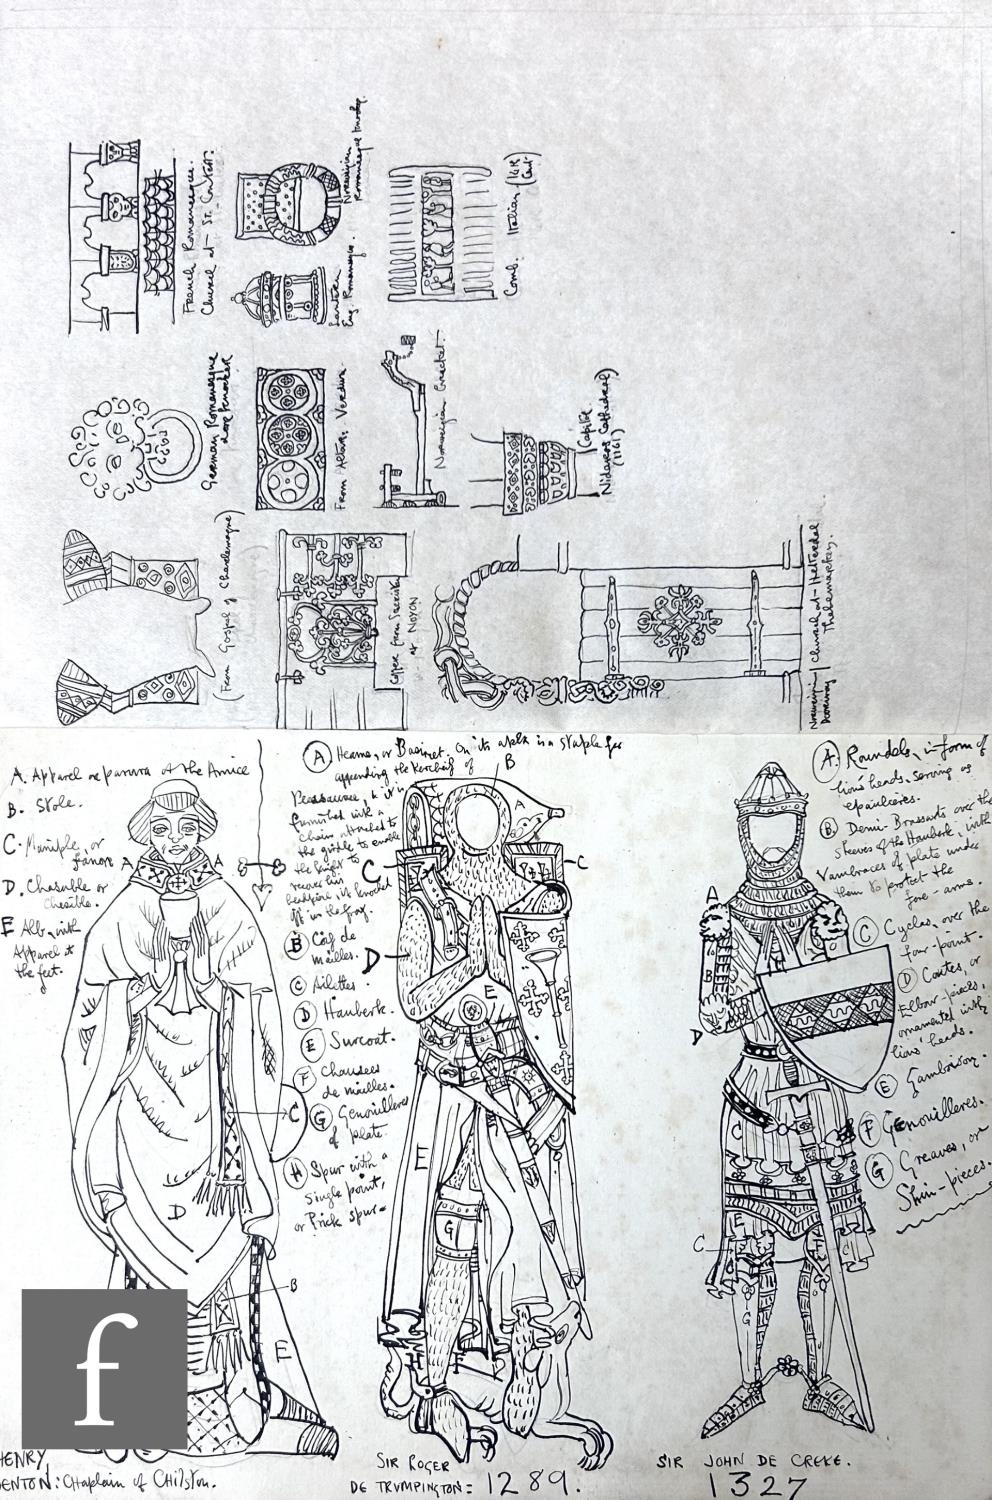 French Romanesque.
Church at St. Contest.
Norwegian
Romanesque
Lantern
Eng. Romanesque.
Comb. Italian (14th Cent)
German Romanesque
door knocker
From Altar: Verdun
Norwegian Cresset.
Capital
Nidaros Cathedral)
(1161)
(From Gospel of Charlemagne)
Coffer from Sacristy
at NOYON
Norwegian
Doorway
Church at Hitterdal
Thelemarken.
A. Apparel or parura of the Amice
B. Stole.
C. Maniple, or
fanone
D. Chasuble or
chesible.
E Alb, with
Apparel at
the feet.
A A
C
D
B
E
HENRY
DENTON: Chaplain of Chilston.
A Heaume, or Basinet. On its apex is a staple for
appending the kerchief of
Pleasaunce, & it is
furnished with a
chain attached to
the girdle to enable
the knight to
recover his
headpiece if knocked
off in the fray.
B Coif de
mailles.
C Ailettes.
D Hauberk.
E Surcoat.
F Chausses
de mailles.
G Genouilleres
of plate.
H Spur with a
single point,
or Prick spur
B
A
C C
D
E
E
G
H F
SIR ROGER
DE TRUMPINGTON = 1289.
A. Roundels, in form of
lions' heads. serving as
epaulieres.
B. Demi-Brassarts over the
sleeves of the Hauberk, with
Vambraces of plate under
them to protect the
fore-arms.
C Cyclas, over the
four-point.
D Coutes, or
Elbow-pieces,
ornamented with
lions' heads.
E Gamboison.
F Genouilleres.
G Greaves, or
Shin-pieces.
A
B
D
C
E
C
H
C
G
SIR JOHN DE CREKE.
1327
f